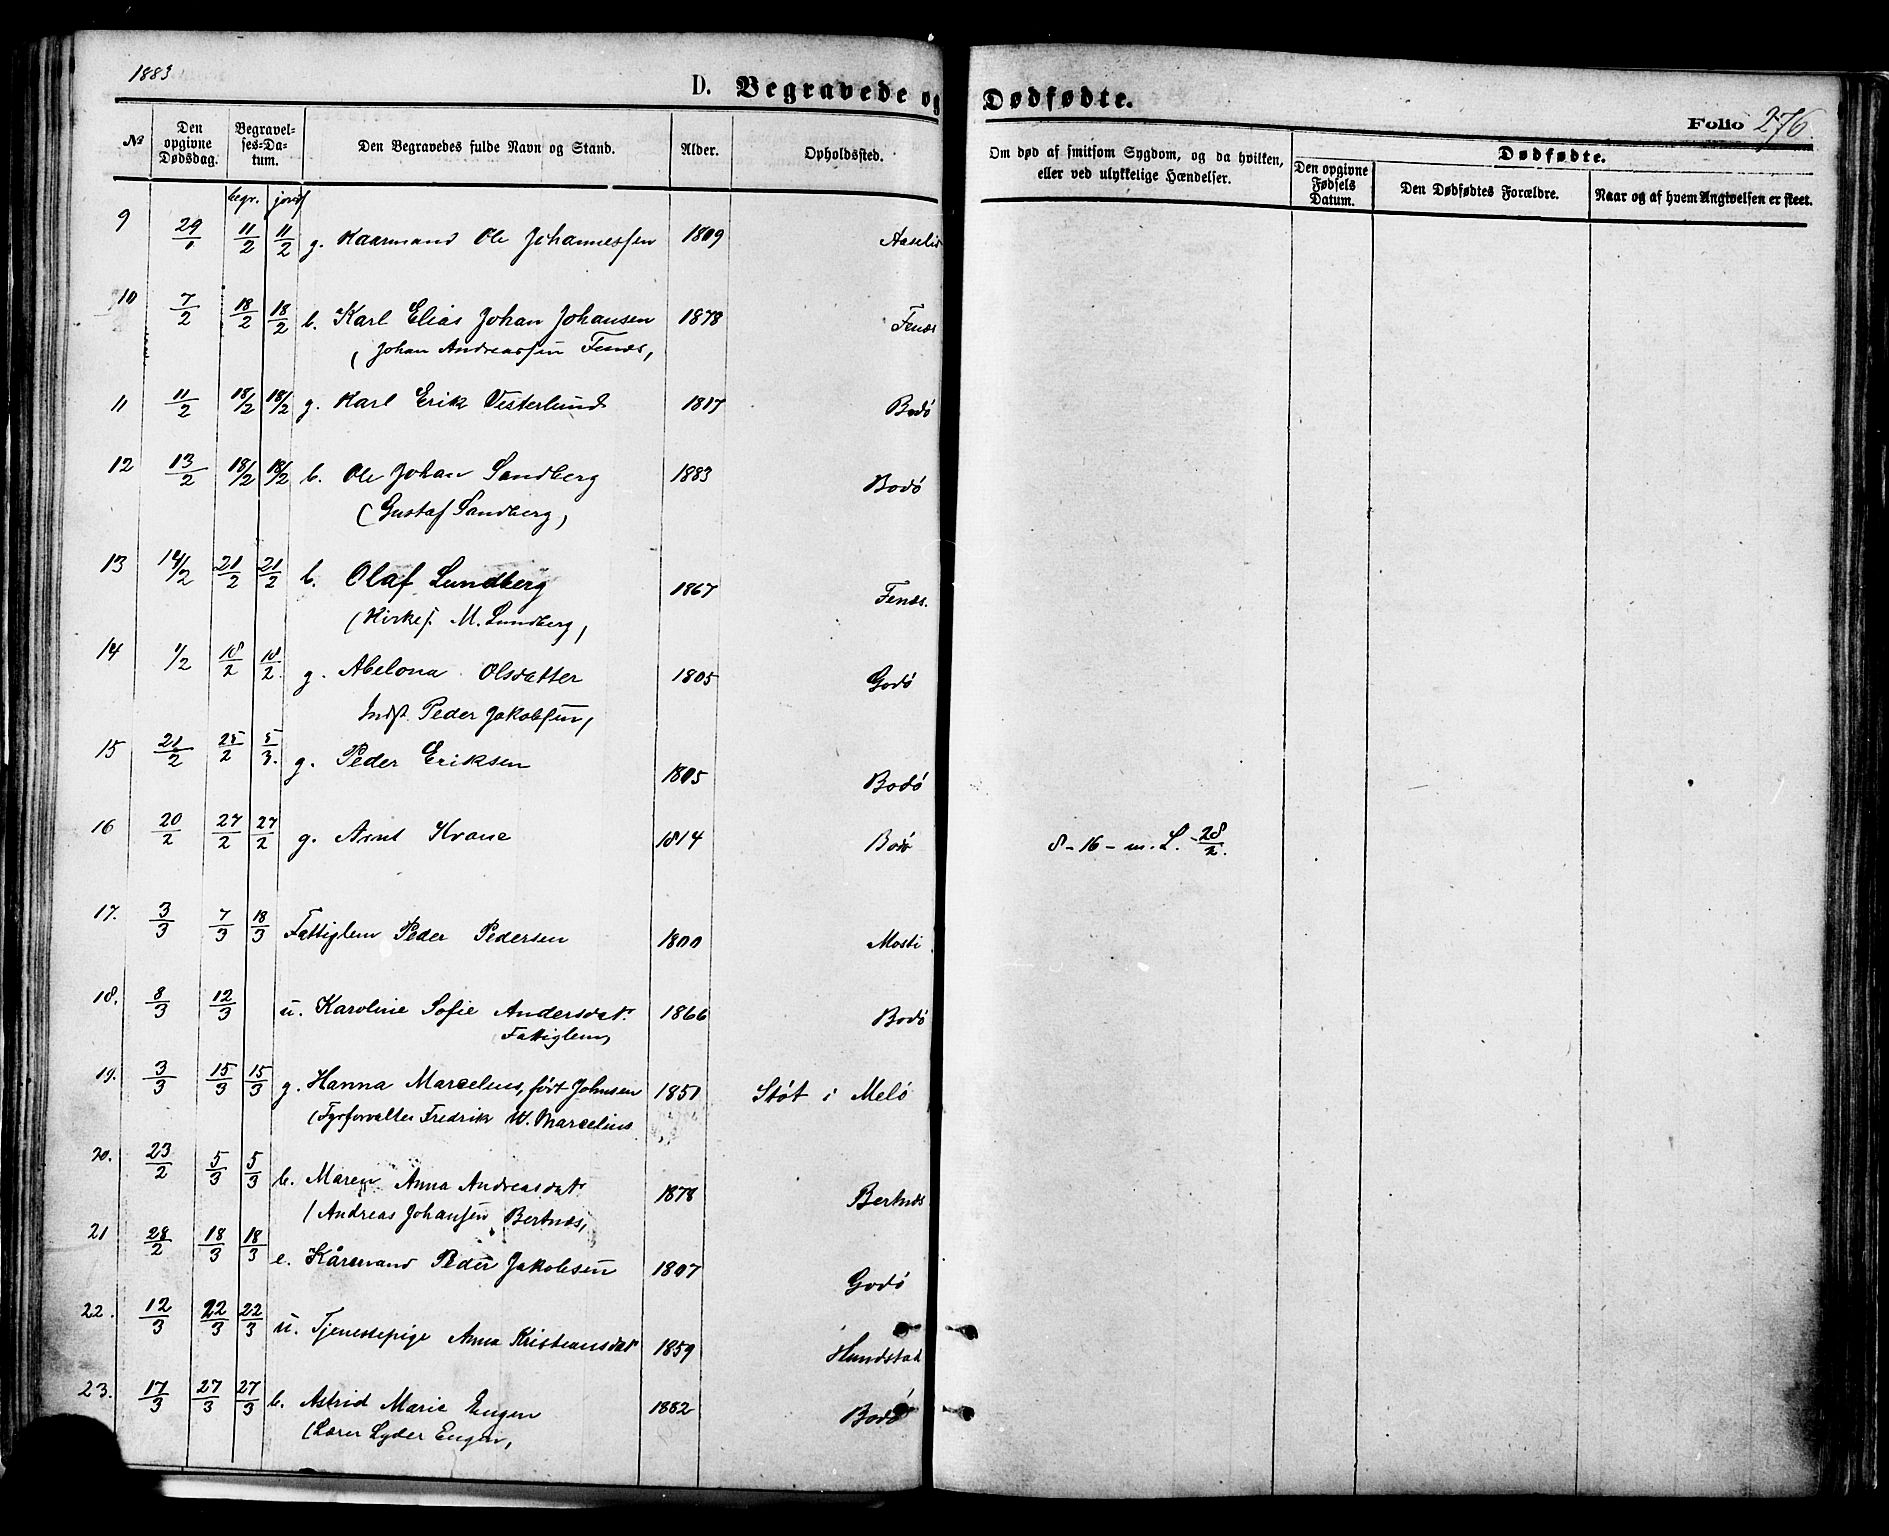 1883
D. Begravede og Dødfødte.
Folio 276.
№ Den opgivne Dødsdag. Begravelses-Datum. Den Begravedes fulde Navn og Stand. Alder. Opholdssted. Om død af smitsom Sygdom, og da hvilken, eller ved ulykkelige Hændelser. Dødfødte. Den opgivne Fødsels Datum. Den Dødfødtes Forældre. Naar og af hvem Angivelsen er skeet.
begr. jordf
9 29/1 11/2 11/2 g. Kaarmand Ole Johannessen 1809 Aaseli
10 7/2 18/2 18/2 b. Karl Elias Johan Johansen 1878 Fenæs
(Johan Andreassen Fenæs,
11 11/2 18/2 18/2 g. Karl Erik Vesterlund 1817 Bodö
12 13/2 18/2 18/2 b. Ole Johan Sandberg 1883 Bodö
(Gustaf Sandberg,
13 14/2 21/2 21/2 b. Olaf Lundberg 1867 Fenæs.
(Kirkes. M. Lundberg,
14 1/2 18/2 18/2 g. Abelona Olsdatter 1805 Godö
Indst. Peder Jakobsen,
15 21/2 25/2 5/3. g. Peder Eriksen 1805 Bodö
16 20/2 27/2 27/2 g. Arnt Krane 1814 Bodö 8-16-m. L. 28/2.
17. 3/3 7/3 18/3 Fattiglem Peder Pedersen 1800 Mosti
18. 8/3 12/3 u. Karoline Sofie Andersdatr. 1866 Bodö
Fattiglem,
19. 3/3 15/3 15/3 g. Hanna Marcelius, född Johnsen 1851 Stöt i Melö
(Fyrforvalter Fredrik W. Marcelius
20. 23/2 5/3 5/3 b. Maren Anna Andreasdatr 1878 Bertnæs
(Andreas Johansen Bertnæs,
21 28/2 18/3 18/3 e. Kårmand Peder Jakobsen 1807 Godö
22. 12/3 22/3 22/3 u. Tjenestepige Anna Kristiansdatr 1859 Hundstad
23. 17/3 27/3 27/3 b. Astrid Marie Engen 1882 Bodö
(Lærer Lyder Engen,